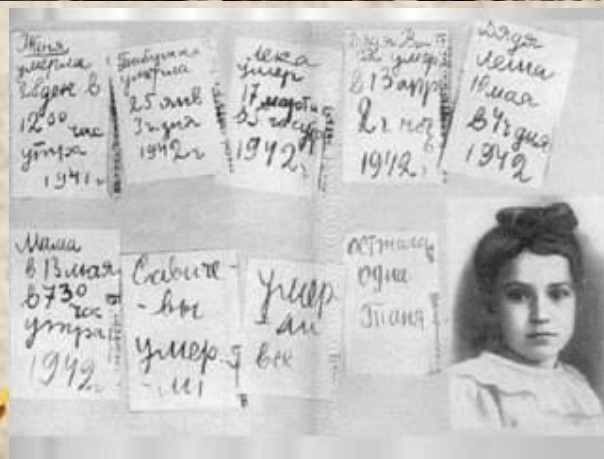 Женя
умерла
28 дек в
12 00 час
утра
1941 г
Бабушка
умерла
25 янв
3 ч дня
1942 г
Лека
умер
17 марта
в 5 час утр
1942 г
Дядя Вася
умер
в 13 апр
2 ч ноч
1942 г
Дядя
Леша
10 мая
в 4 ч дня
1942
Мама
в 13 мая
в 7 30
час
утра
1942 г
Савиче-
-вы
умер-
-ли
умер
-ли
все
осталась
одна
Таня